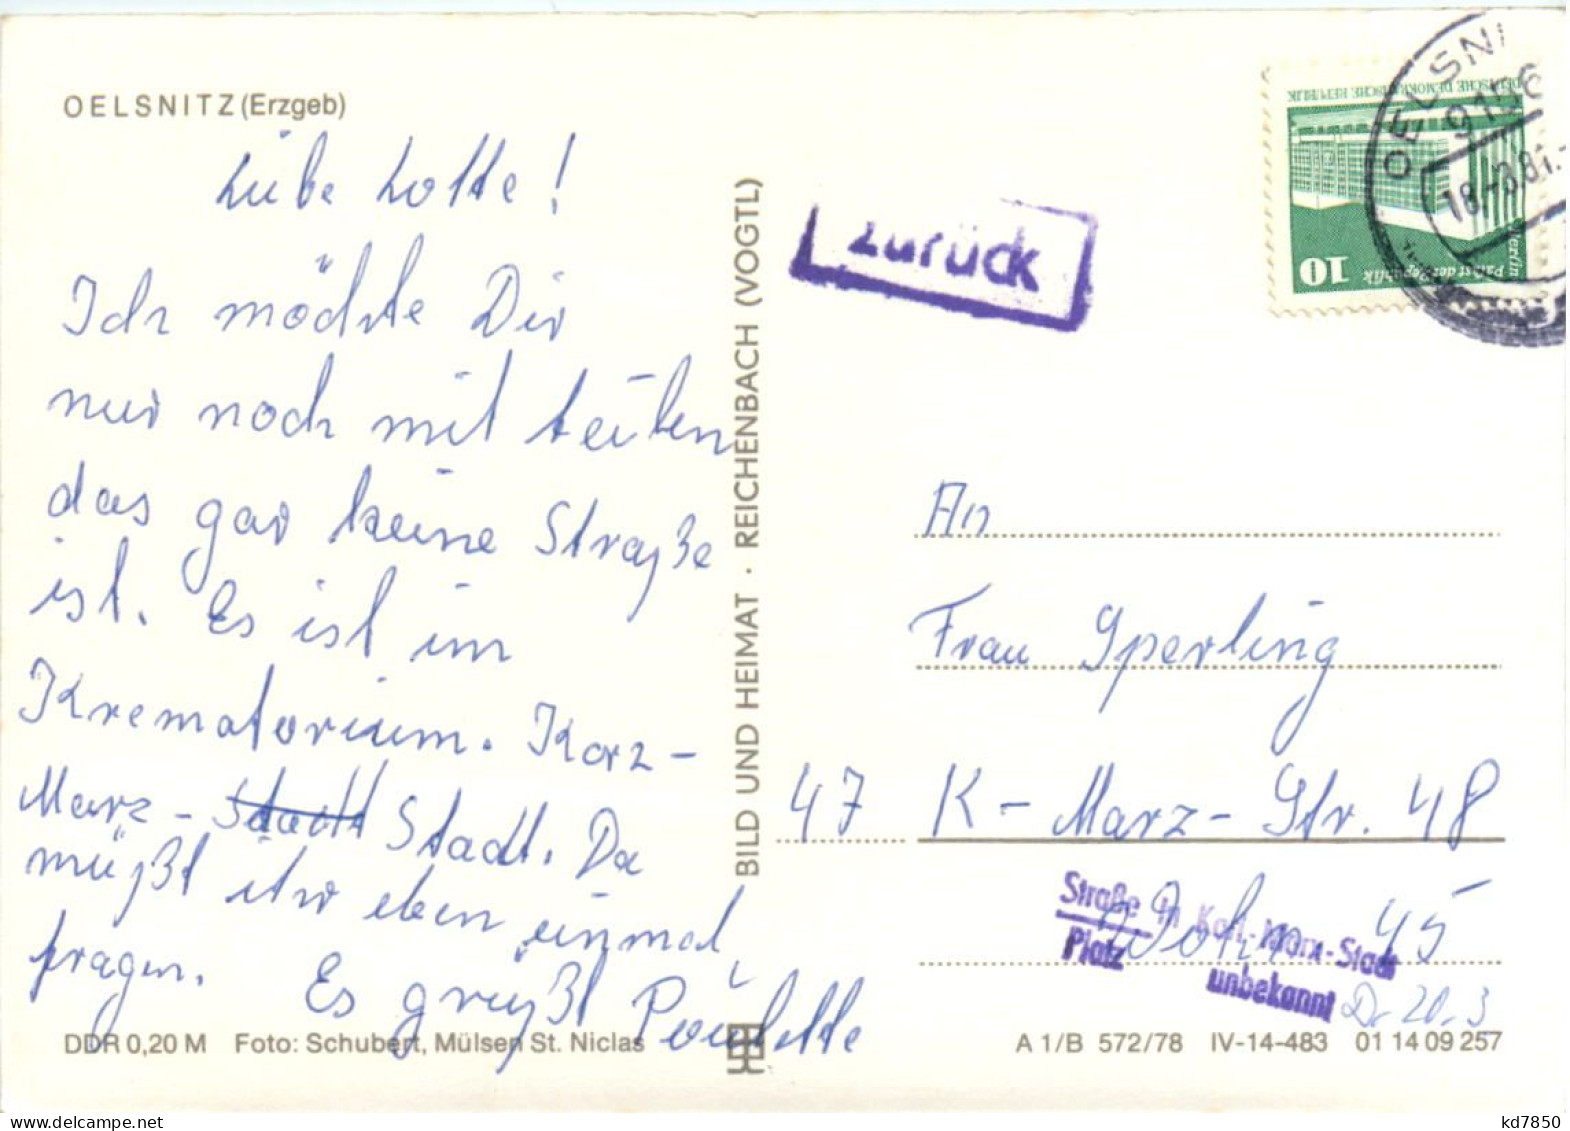 OELSNITZ (Erzgeb)
Liebe Lotte!
Ich möchte Dir
nur noch mit teilen
das gar keine Straße
ist. Es ist im
Krematorium. Karz-
Marz - Stadt Stadt. Da
müßt ihr eben einmal
fragen. Es grüßt
DDR 0,20 M Foto: Schubert, Mülsen St. Niclas
BILD UND HEIMAT · REICHENBACH (VOGTL)
Zurück
DEUTSCHE DEMOKRATISCHE REPUBLIK
Berlin
Palast der Republik
10
OELSNI
9156
18.-3.81.
An
Frau Sperling
47 K - Marz - Str. 48
Wohn. 45
Straße in Karl-Marx-Stadt
Platz
unbekannt
20.3
A 1/B 572/78 IV-14-483 01 14 09 257
kd7850